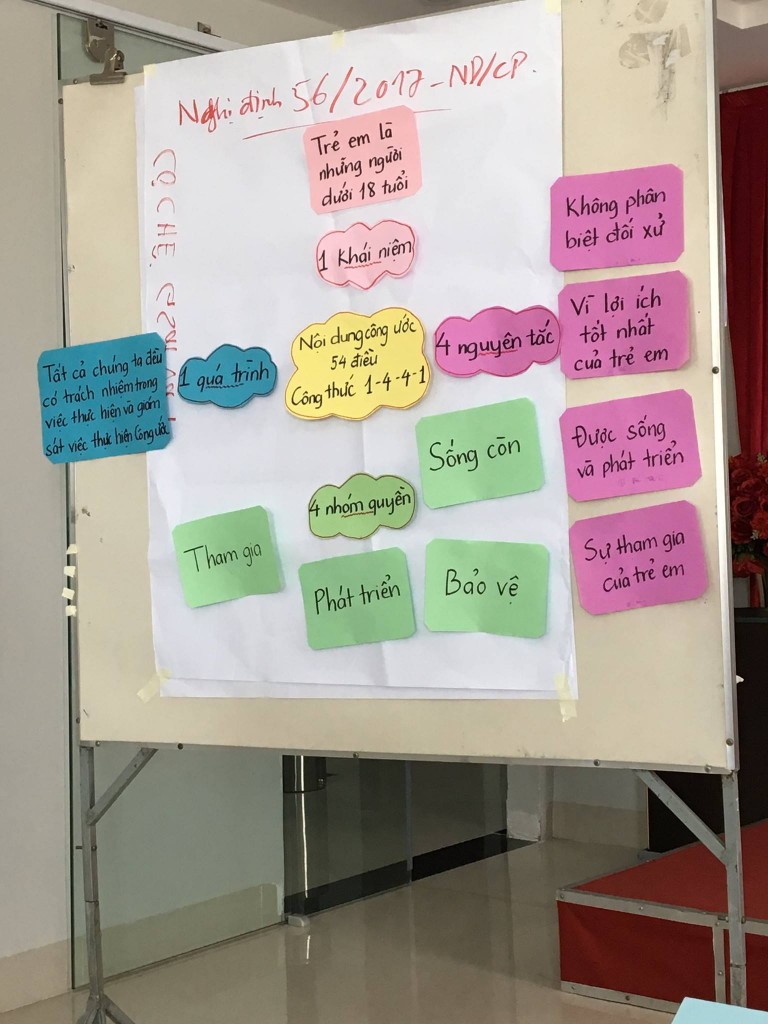 Nghị định 56/2017-NĐ/CP.
Trẻ em là
những người
dưới 18 tuổi
1 Khái niệm
Không phân
biệt đối xử
Vì lợi ích
tốt nhất
của trẻ em
4 nguyên tắc
Nội dung công ước
54 điều
Công thức 1-4-4-1
1 quá trình
Tất cả chúng ta đều
có trách nhiệm trong
việc thực hiện và giám
sát việc thực hiện Công ước
Được sống
và phát triển
Sống còn
4 nhóm quyền
Tham gia
Phát triển
Bảo vệ
Sự tham gia
của trẻ em